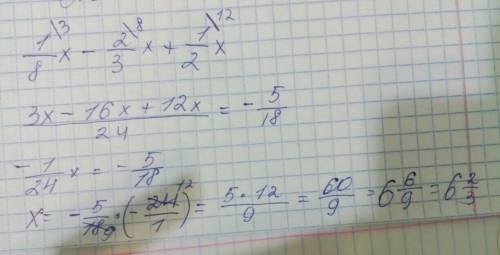 1/8 x \3 − 2/3 x \8 + 1/2 x \12
(3x − 16x + 12x)/24 = − 5/18
− 1/24 x = − 5/18
x = − 5/18 9 · (− 24 12/1) = 5·12/9 = 60/9 = 6 6/9 = 6 2/3